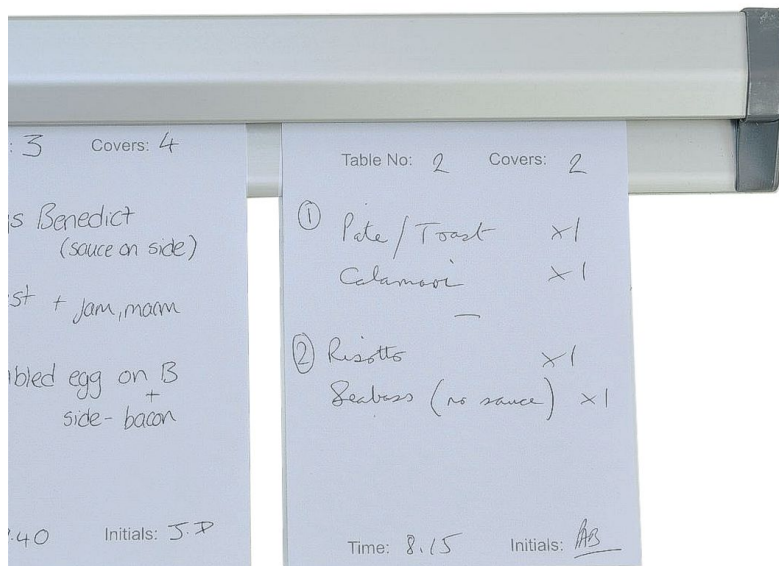 : 3 Covers: 4
s Benedict
(sauce on side)
st + Jam, marm
bled egg on B
+
side - bacon
.40 Initials: J.D
Table No: 2 Covers: 2
① Pate / Toast x1
Calamari x1
—
② Risotto x1
Seabass (no sauce) x1
Time: 8.15 Initials: AB